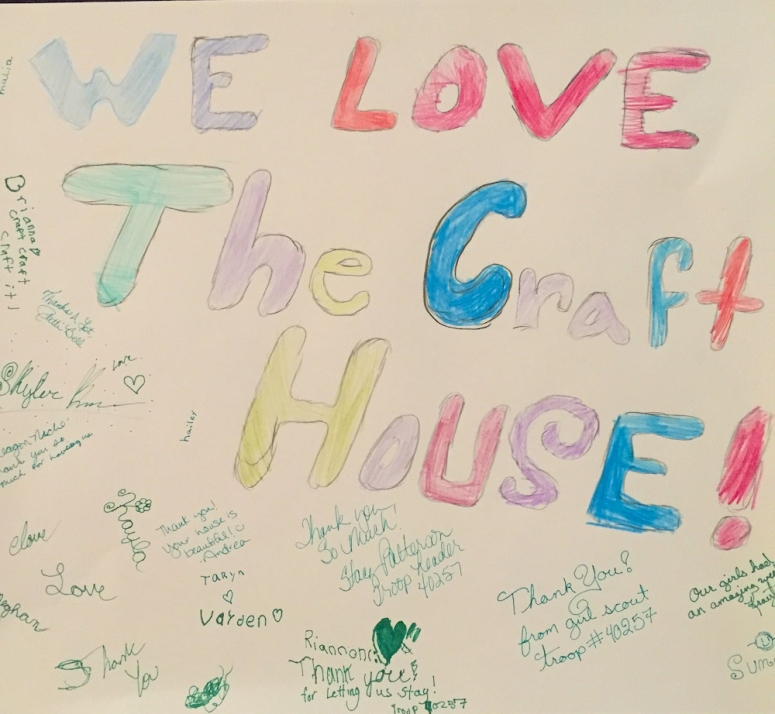 WE LOVE
The Craft
HOUSE!
malia
Brianna
craft craft
craft it!
Thank you
Love
Skyler
hailey
thank you so
much for having us
Kayla
Thank you!
your house is
beautiful!
-Andrea
Taryn
Varden
Love
Meghan
Thank
You
Thank you
So Much!
Stacy Patterson
Troop Leader
40257
Riannon
Thank you!
for Letting us stay!
Troop 40257
Thank You!
from girl scout
troop #40257
Our girls had
an amazing